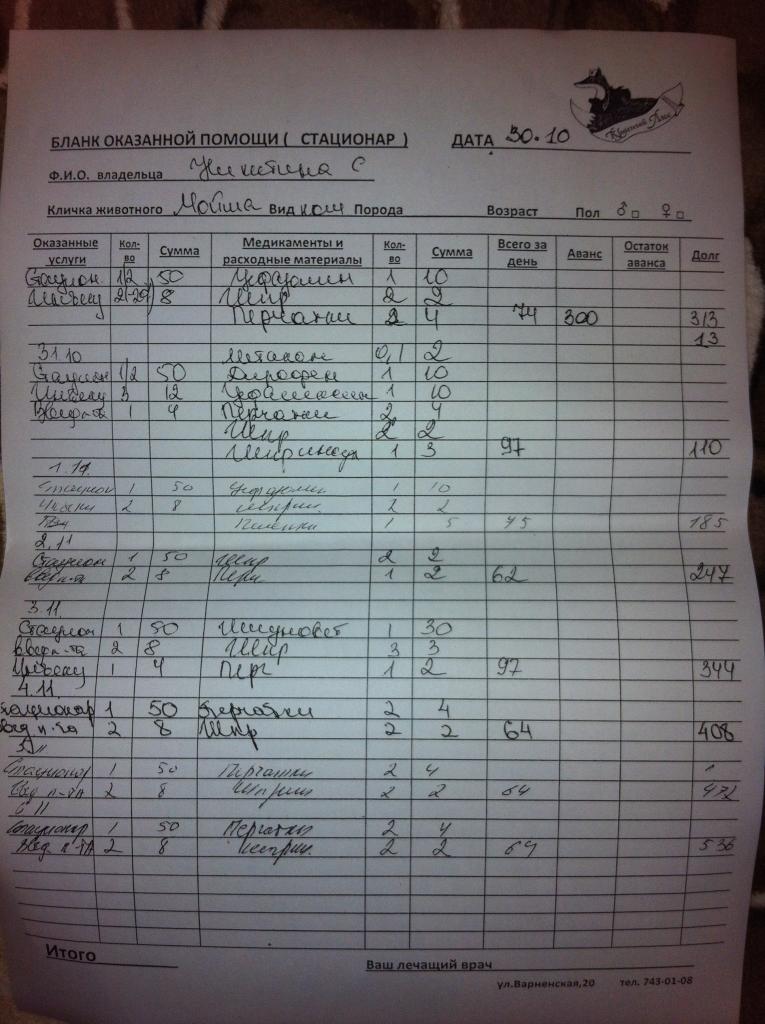 БЛАНК ОКАЗАННОЙ ПОМОЩИ ( СТАЦИОНАР ) ДАТА 30.10
Ф.И.О. владельца Никитина С
Кличка животного Мойша Вид кот Порода Возраст Пол ♂□ ♀□
Оказанные услуги Кол-во Сумма Медикаменты и расходные материалы Кол-во Сумма Всего за день Аванс Остаток аванса Долг
Стацион. 1/2 50 1 10
8 Шпр 2 2
Перчатки 2 4 74 300 313
13
31.10 0,1 2
Стацион 1/2 50 Дирофен 1 10
3 12 1 10
1 4 Перчатки 2 4
Шпр 2 2
1 3 97 110
1.11
Стацион 1 50 1 10
2 8 шприц 2 2
Пеленки 1 5 75 185
2.11
Стацион 1 50 Шпр 2 2
Введ п-та 2 8 Перч 1 2 62 247
3.11
Стацион 1 50 Имуновет 1 30
введ п-та 2 8 Шпр 3 3
1 4 Перч 1 2 97 344
4.11.
Стационар 1 50 Перчатки 2 4
Введ п-та 2 8 Шпр 2 2 64 408
5.11
Стационар 1 50 Перчатки 2 4
Введ п-та 2 8 Шприц 2 2 64 472
6 11
Стационар 1 50 Перчатки 2 4
Введ п-та 2 8 шприц. 2 2 64 536
Итого
Ваш лечащий врач
ул.Варненская,20 тел. 743-01-08